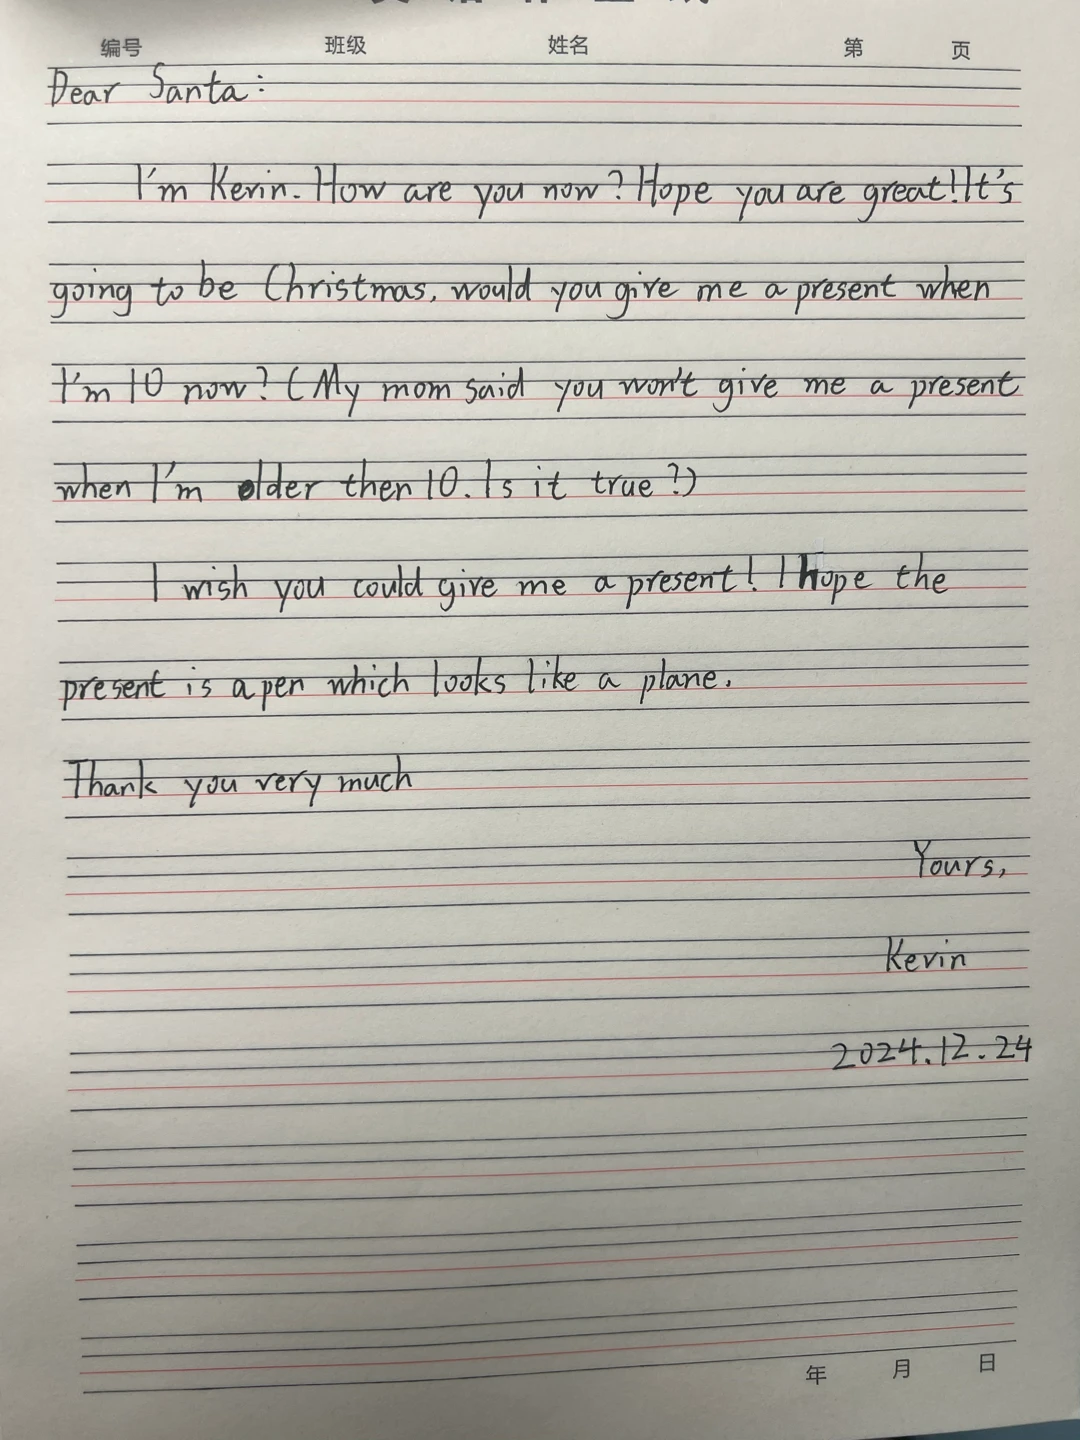 编号 班级 姓名 第 页
Dear Santa:
I'm Kevin. How are you now? Hope you are great! It's
going to be Christmas, would you give me a present when
I'm 10 now? (My mom said you won't give me a present
when I'm older then 10. Is it true?)
I wish you could give me a present! I hope the
present is a pen which looks like a plane.
Thank you very much
Yours,
Kevin
2024.12.24
年 月 日